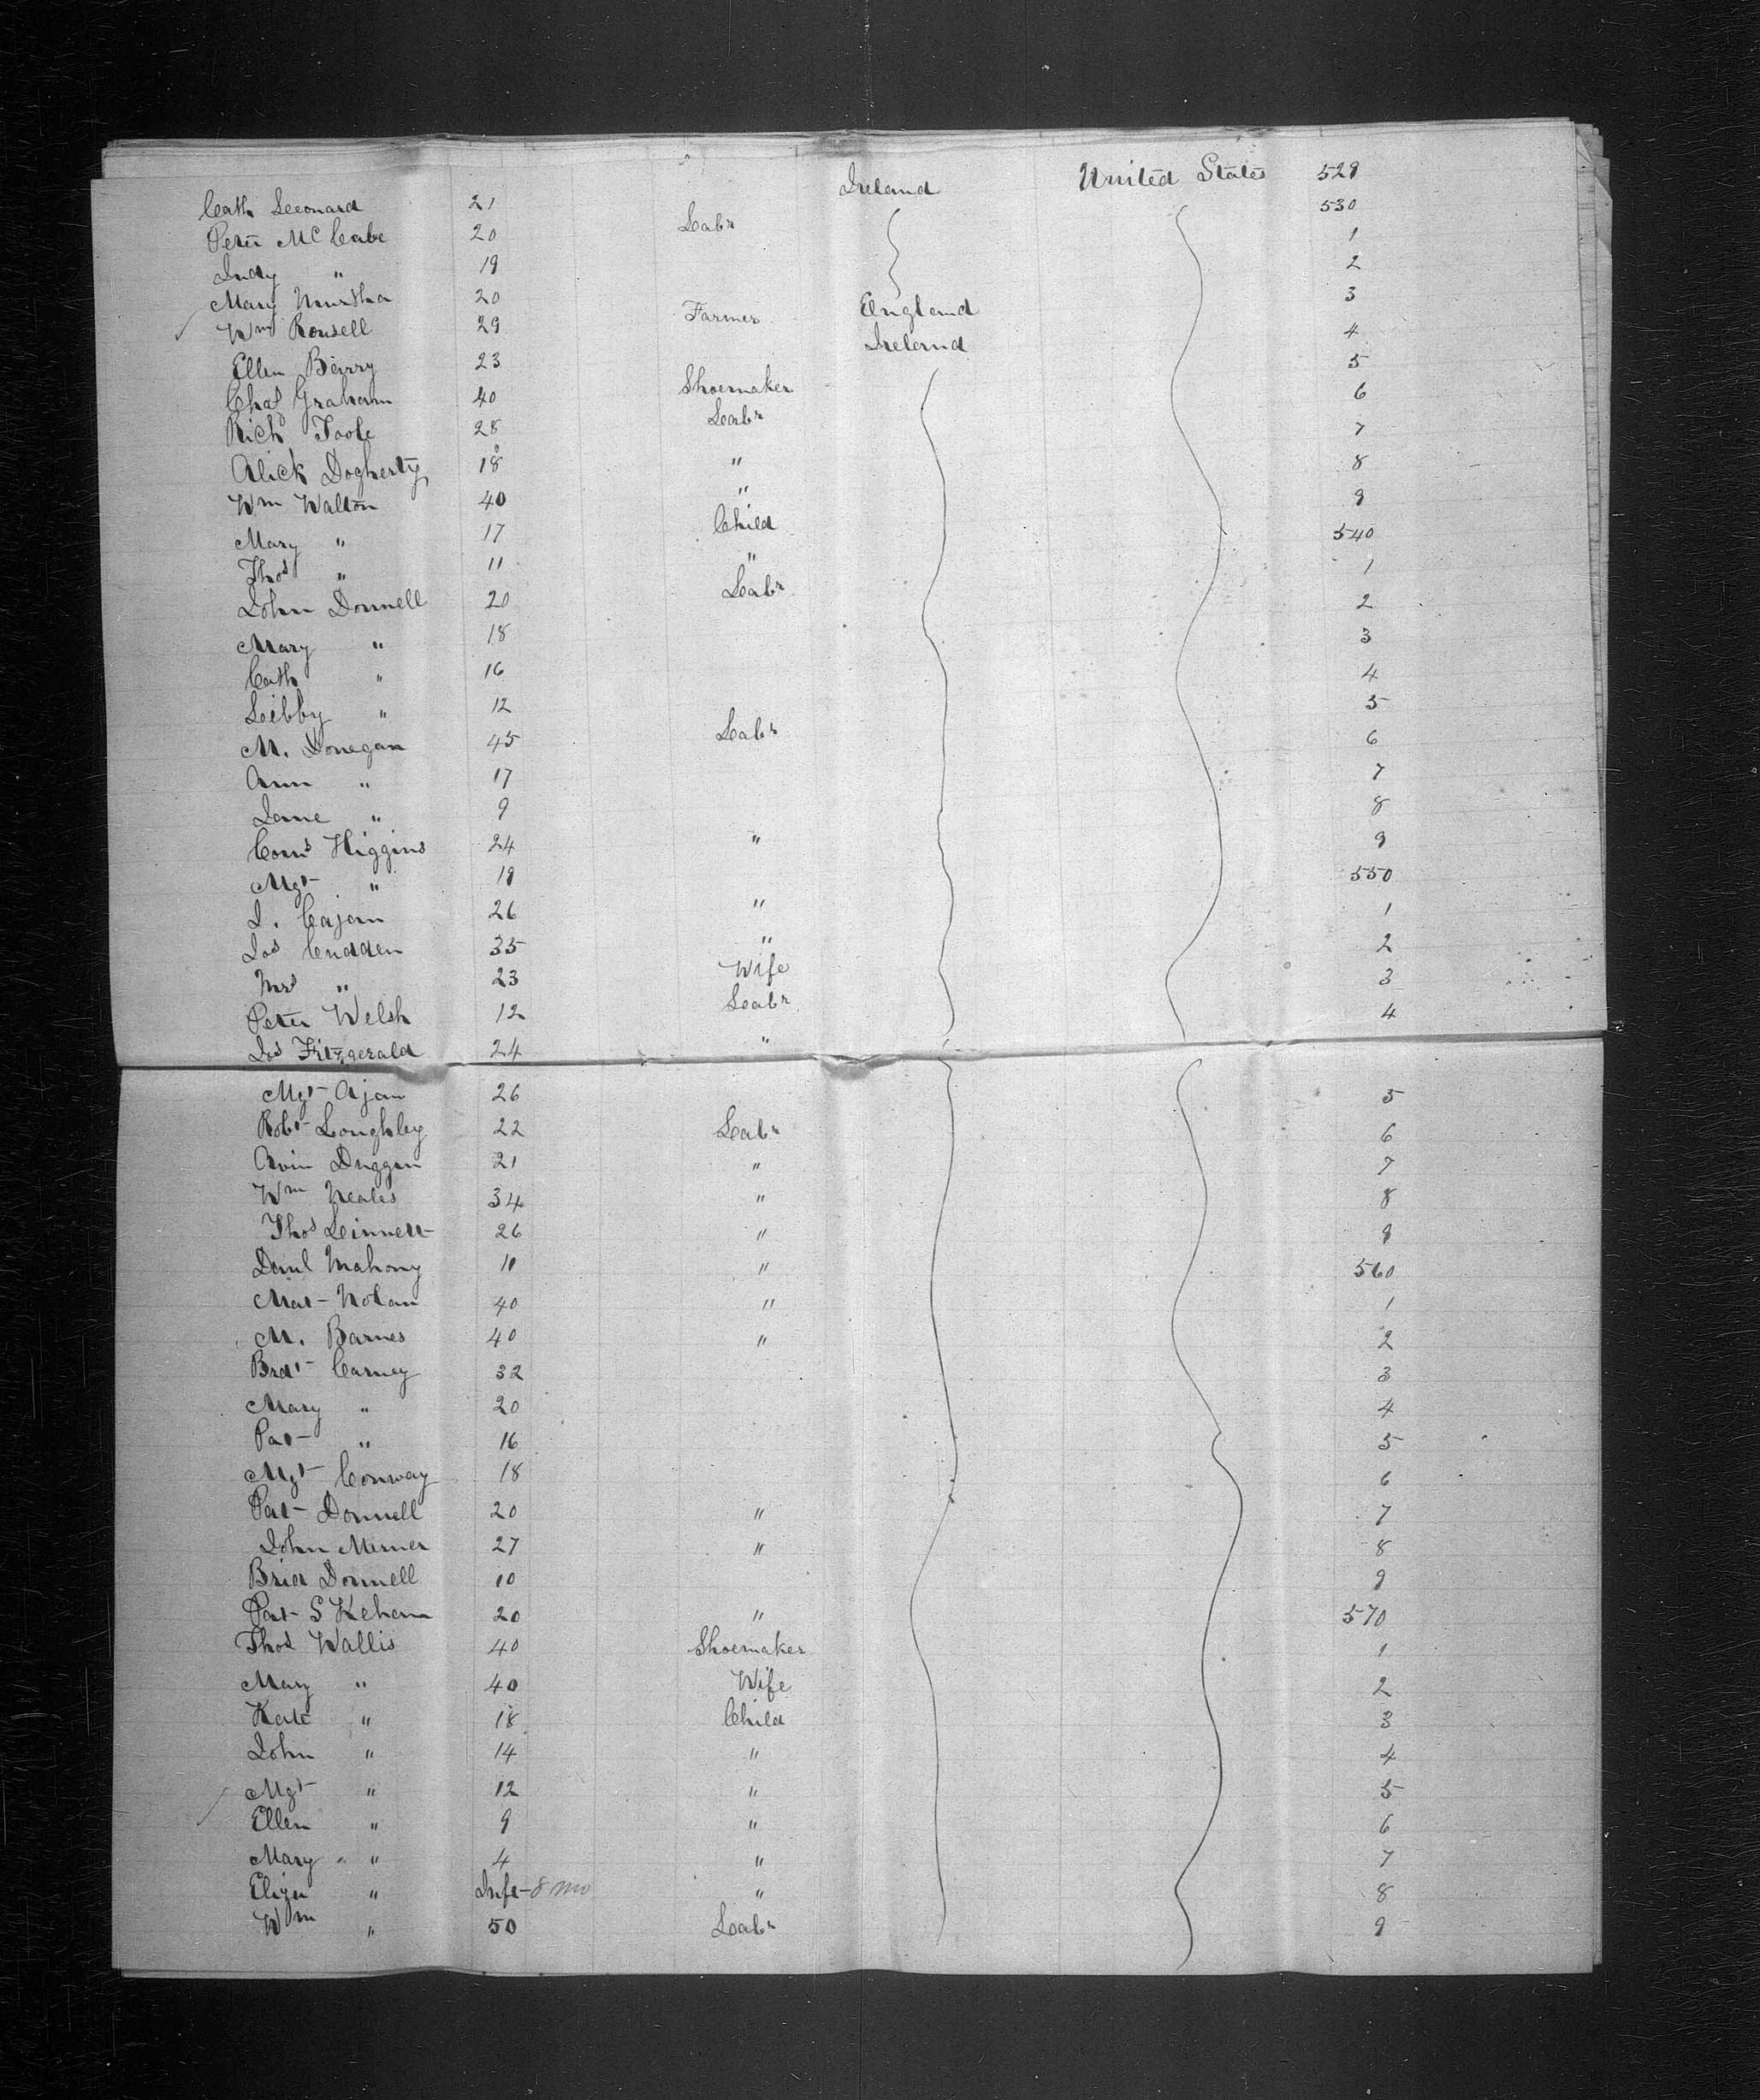 Cath Leonard 21 Ireland United States 529
Peter McCabe 20 Labr 530
Judy " 19 1
Mary Murtha 20 2
Wm Rousell 29 Farmer England 3
Ellen Barry 23 Ireland 4
Chas Graham 40 Shoemaker 5
Richd Toole 28 Labr 6
Alick Dogherty 18 " 7
Wm Walton 40 " 8
Mary " 17 Child 9
Thos " 11 " 540
John Donnell 20 Labr 1
Mary " 18 2
Cath " 16 3
Libby " 12 4
M. Donegan 45 Labr 5
Ann " 17 6
Jane " 9 7
Corns Higgins 24 " 8
Mgt " 19 9
J. Cajan 26 " 550
Jas Cudden 35 " 1
Mrs " 23 Wife 2
Peter Welsh 12 Labr 3
Jas Fitzgerald 24 " 4
Mgt Ajan 26 5
Robt Loughley 22 Labr 6
Duggan 21 " 7
Wm Neales 34 " 8
Thos Linnett 26 " 9
Danl Mahony 11 " 560
Mat Nolan 40 " 1
M. Barnes 40 " 2
Brdt Carney 32 3
Mary " 20 4
Pat " 16 5
Mgt Conway 18 6
Pat Donnell 20 " 7
John Merner 27 " 8
Brid Donnell 10 9
Pat S Kehan 20 " 570
Thos Wallis 40 Shoemaker 1
Mary " 40 Wife 2
Kate " 18 Child 3
John " 14 " 4
Mgt " 12 " 5
Ellen " 9 " 6
Mary " 4 " 7
Eliza " Inft 8 mo " 8
Wm " 50 Labr 9